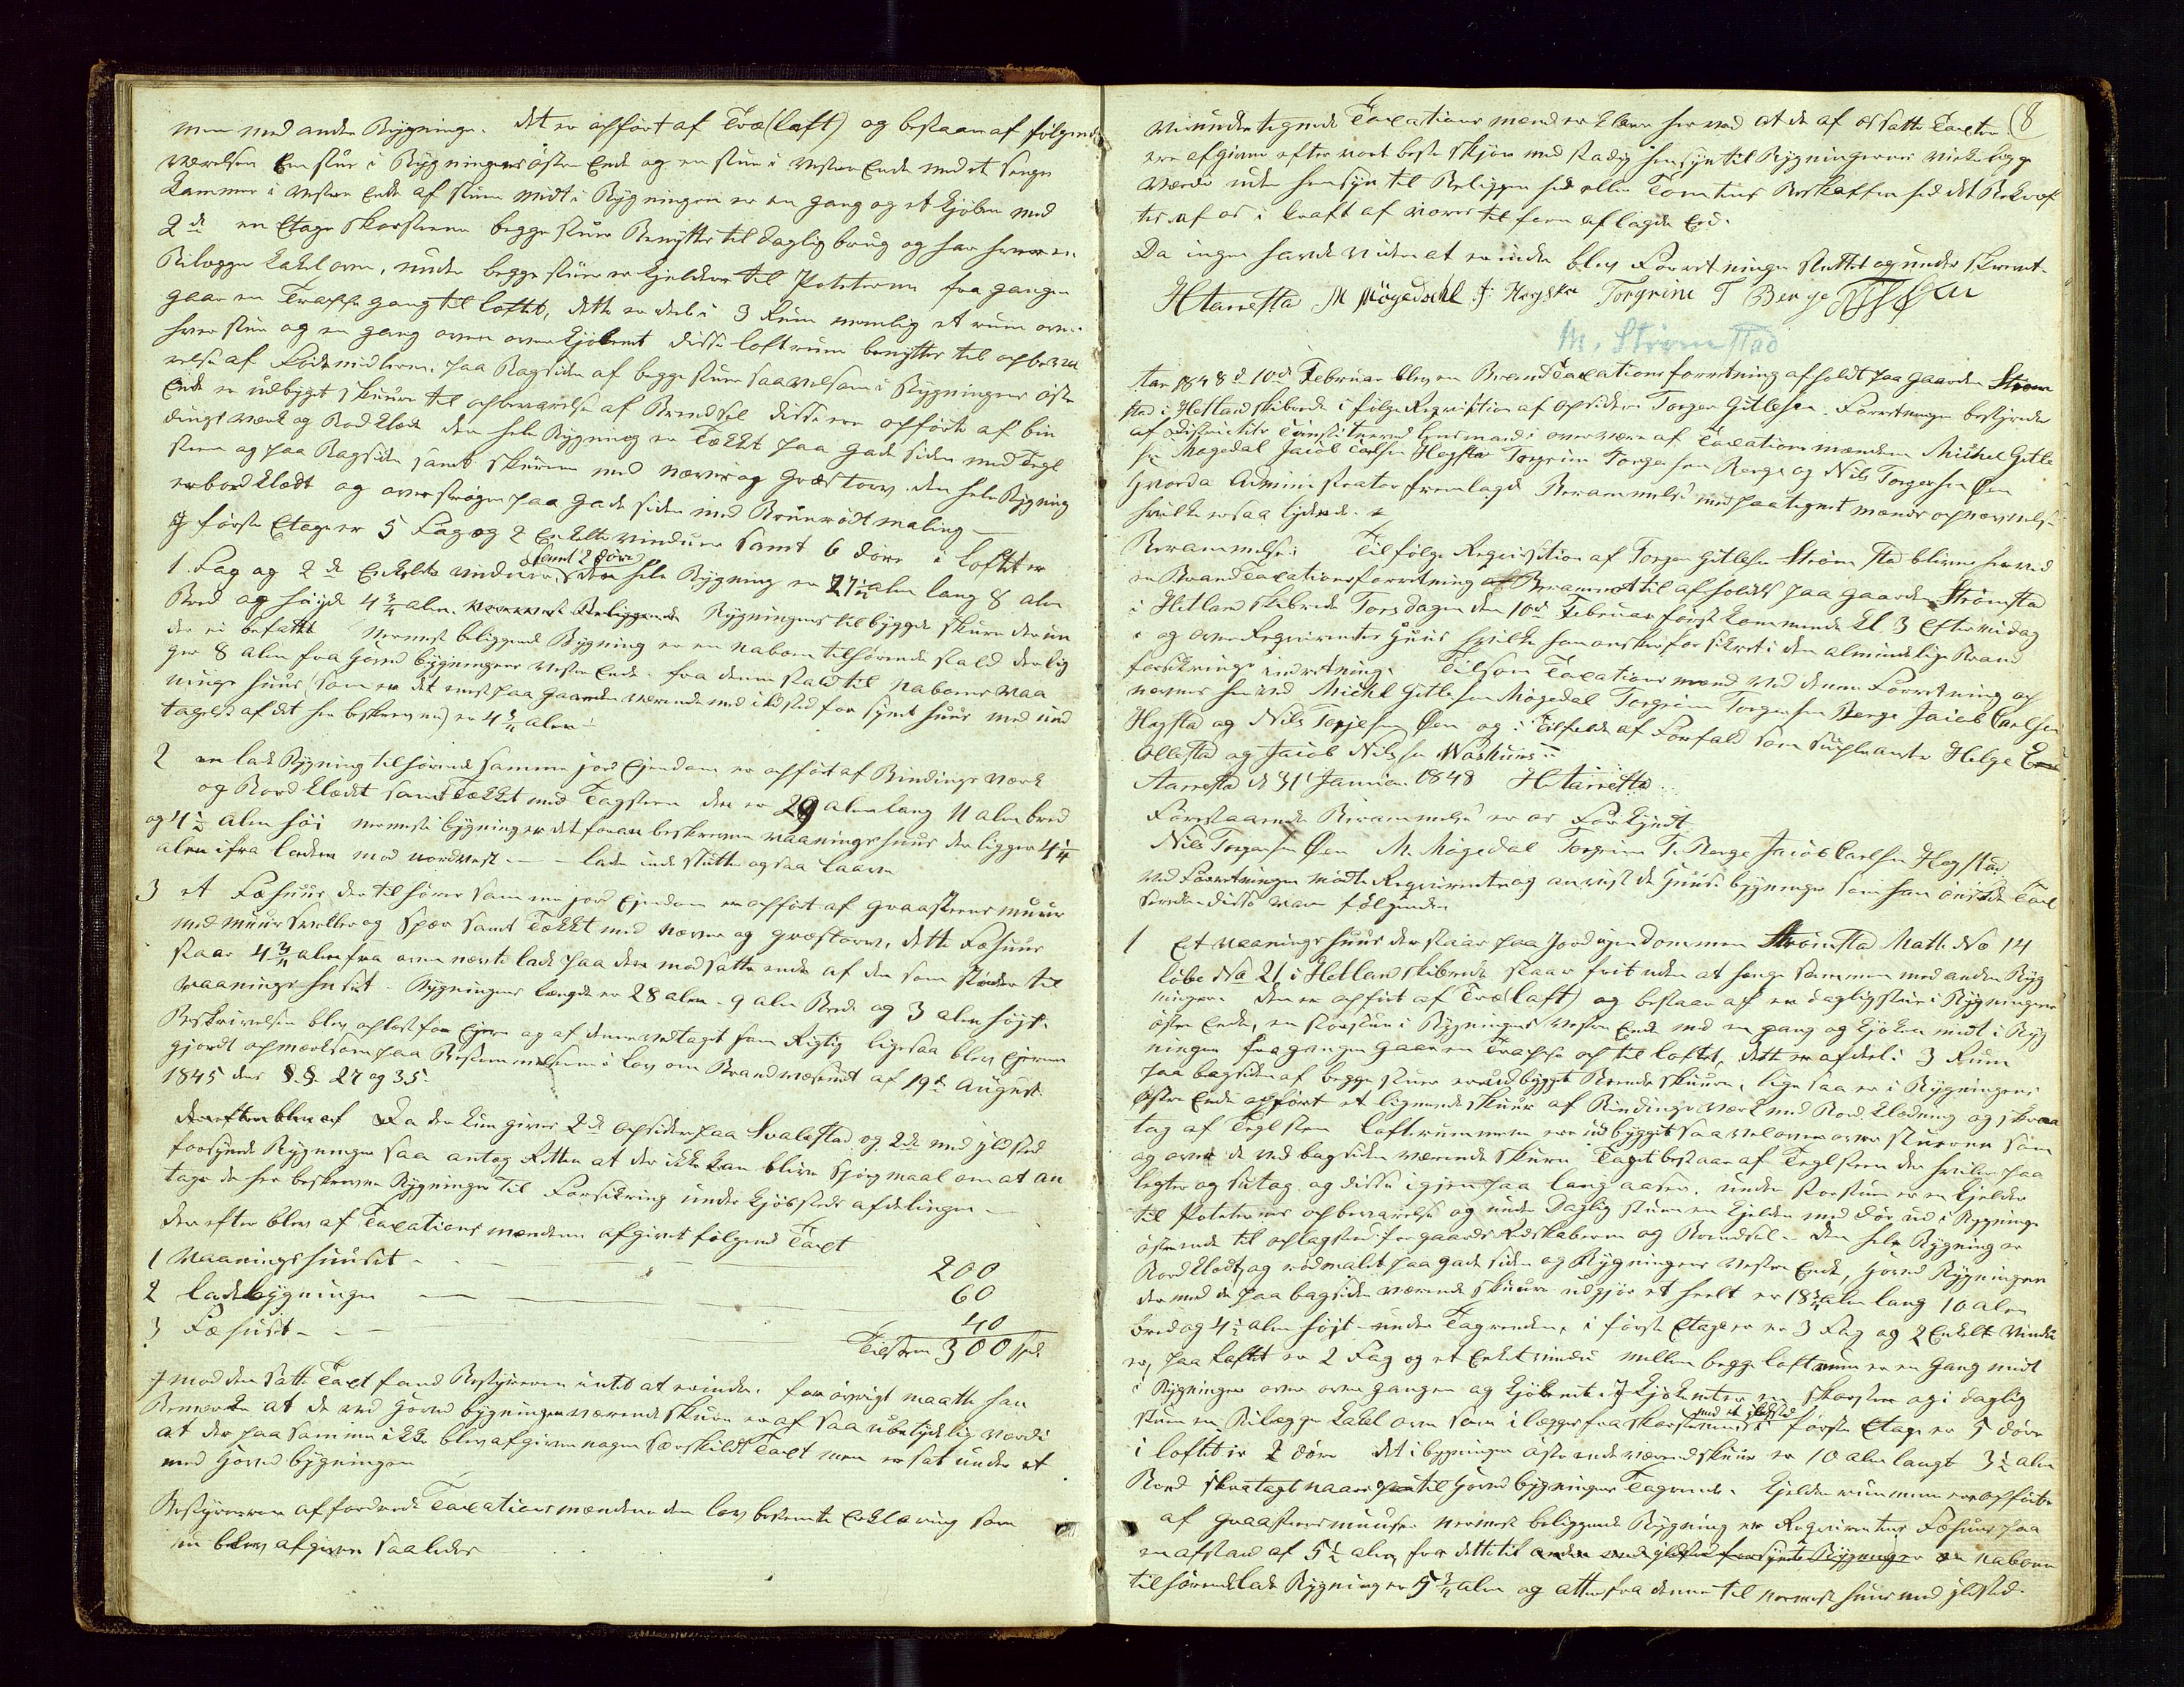 men med andre Bygninger. Det er opført af Træ (laft) og bestaar af følgende
værelser En stue i Bygningens østre Ende og en stue i vestre Ende med et senge
Kammer i vestre Ende af stuen midt i Bygningen er en gang og et Kjøken med
2de en Etage skorstene begge stuer Benyttes til daglig brug og har hver en
Bilægger Kakelovn, under begge stuer er Kjelder til Poteterne fra gangen
gaar en Trappe gang til loftet, dette er delt i 3 Rum nemlig et rum over
hver stue og en gang oven over Kjøkenet disse loftrum benyttes til opbeva
relse af Fødemidlerne. Paa Bagsiden af begge stuer saavelsom i Bygningens østre
Ende er udbygt skuure til opbevarelse af Brendsel disse ere opførte af bin
dingsverk og Bord Klædt den hele Bygning er Tækket paa gade siden med Tegl
steen og paa Bagsiden samt skurene med næver og græstorv. den hele Bygning
er bord Klædt og overstrøgen paa gade siden med Bruunrødt maling
I første Etage er 5 Fag og 2 Enkelte vinduer samt 6 døre i loftet er
1 Fag og 2de Enkelte vinduer, (samt 2 døre) den hele Bygning er 27½ alen lang 8 alen
Bred og høide 4¾ alen. nærmest Beliggende Bygningens tilbyggede skure derun
der ei befattet Nermest beliggende Bygning er en naboen tilhørende stald der lig
ger 8 alen fra Hoved bygningens vestre Ende. fra denne stald til naboens vaa
nings huus (som er det nest paa gaarden værende med ildsted for synet huus med und
tagelse af det her beskrevne) er 4¾ alen
2 en lade Bygning tilhørende samme jord Ejendom er opført af Bindings værk
og Bord Klædt samt Tækket med Tagsteen den er 29 alen lang 11 alen bred
og 4½ alen høi nermeste bygning er det foran beskrevne vaaningshuus der ligger 4¼
alen ifra laden mod nordvest. — lade indeslutte ogsaa laaven
3 et Fæhuus der tilhører samme jord Ejendom er opført af graasteens muur
med muur sveller og Spær samt Tækket med næver og græstorv, dette Fæhuus
staar 4¾ alen fra oven nævnte lade paa den modsatte ende af den som støder til
vaanings huset. Bygningens længde er 28 alen 9 alen Bred og 3 alen højt.
Beskrivelsen blev oplæst for Ejeren og af denne vedtaget som Rigtig ligesaa blev Ejeren
gjordt opmærksom paa Bestemmelserne i lov om Brandvæsenet af 19de August
1845 dens §.§. 27 og 35.
derefter blev af Da der kun gives 2de opsidere paa Svalestad og 2de med ildsted
forsynede Bygninger saa antog Retten at der ikke kan blive Spørgmaal om at an
tage de her beskrevne Bygninger til Forsikring under Kjøbstads afdelingen —
derefter blev af Taxationsmændene afgivet følgende Taxt
1 Vaaningshuuset — 200
2 lade bygningen — 60
3 Fæhuset — 40
Tilsam 300 spd.
I mod den satte Taxt fand Bestyreren intet at erindre. for øvrigt maatte han
Bemerke at de ved Hoved bygningen værende skure er af saa ubetydelig værdi
at der paa samme ikke blev afgiven nogen særskildt Taxt men er sat under et
med Hoved bygningen
Bestyreren affordrede Taxationsmændene den lov bestemte Erklæring som
nu blev afgiven saaledes
8
Vi undertegnede Taxations mend erklærer herved at de af os satte Taxter
ere afgivne efter vort beste skjøn med stadig hensyn til Bygningernes virkelige
værdi uden hensyn til Beliggenhed eller Tomtens Beskaffenhed det Bekræf
tes af os i kraft af vores tilforn aflagde Eed.
Da ingen havde videre at erindre blev Forretningen sluttet og under skrevet.
H tarrestad M Møgedahl J: Høgstad Torgrim T Berge
M. Strømstad
Aar 1848 d 10de Februar blev en BrandTaxationsforretning afholdt paa gaarden Strøm
stad i Hetlandskibrede i følge Reqvisition af opsidder Torger Gitlesen. Forretningen bestyredes
af Districtets Constituerede lensmand i overvære af Taxationsmændene Michel Gitle
sen Møgedal Jacob Carlsen Høgstad Torgrim Torgersen Berge og Nils Torgersen Øen
Hvorda Administrator fremlagde Berammelse med paategnet mænds opnævnelse
hvilke er saa lydende.
Berammelse. Tilfølge Reqvisition af Torger Gitlesen Strømstad bliver herved
en BrandTaxationsforretning Berammet til afholdelse paa gaarden Strømstad
i Hetlandskibrede Torsdagen den 10de Februar først kommende Kl. 3 Eftermidag
i og over Reqvirentes Huus hvilke han ønsker forsikret i den almindelige Brand
forsikrings indretning. Til som Taxations mend ved denne Forretning op
nævnes herved Michel Gitlesen Møgedal Torgrim Torgersen Berge Jacob Carlsen
Høgstad og Nils Torjesen Øen og i Tilfælde af Forfald som Supleanter Helge
Ollestad og Jacob Nilssen Washuus
Tarrestad d 31 Januar 1848 H Tarrestad
Forestaaende Berammelse er os Forkyndt
Nils Torgersen Øen M. Møgedal Torgrim T. Berge Jacob Carlsen Høgstad
ved Forretningen mødte Reqvirenten og anviste de Huusbygninger som han ønskede Tax
serede disse vare følgende
1 Et Vaaningshuus der staar paa Jordejendommen Strømstad Matk. No 14
løbe No 21 i Hetlandskibrede staar frit uden at henge sammen med andre Byg
ninger. Den er opført af Træ (laft) og bestaar af en dagligstue i Bygningens
østre Ende, en storstue i Bygningens vestre Ende med en gang og Kjøken midt i Byg
ningen fra gangen gaar en Trappe op til loftet, dette er afdeel i 3 Rum
paa bagsiden af begge stuer er udbygget Brendeskuure, lige saa er i Bygningens
østre Ende opført et lignende skuur af Bindings værk med Bord Klædning og skraa
tag af Teglsteen loftrummene ere udbygget saavel oven over stuerne som
og over de ved bagsiden værende skure Taget bestaar af Teglsteen der hviler paa
legter og sutag og disse igjen paa langaaser. under storstuen er en Kjelder
til Poteternes opbevarelse og under Daglig stuen en Kjelder med Dør ud i Bygningens
østre ende til oplagsted for gaards Redskaberne og Brendsel. Den hele Bygning er
Bord Klædt og rødmalet paa gade siden og Bygningens Vestre Ende, Hoved Bygningen
der med de paa bagsiden værende skuure udgjør et heelt er 18¾ alen lang 10 alen
bred og 4½ alen højt under Tagrenden, i første Etage er 3 Fag og 2 Enkelt Vindu
er, paa Loftet er 2 Fag og et Enkelt vindu mellem begge loftrum er en gang midt
i Bygningen oven over gangen og Kjøkenet. I Kjøkenet er en skorsteen og i daglig
stuen en Bilægger Kakelovn som ilægges fra skorstenen med et ildsted i første Etage er 5 døre
i loftet er 2 døre det i bygningens østre ende værende skuur er 10 alen langt 3½ alen
Bred skratagt naar gaar til Hoved bygningens Tagrende. Kjelder rummene ere opførte
af graasteensmuure nermest beliggende Bygning er Reqvirentens Fæhuus paa
en afstand af 5½ alen, fra dette til anden med ildsted forsynte Bygninger er en naboen
tilhørende lade Bygning er 5¾ alen og atter fra denne til nermeste huus med ildsted